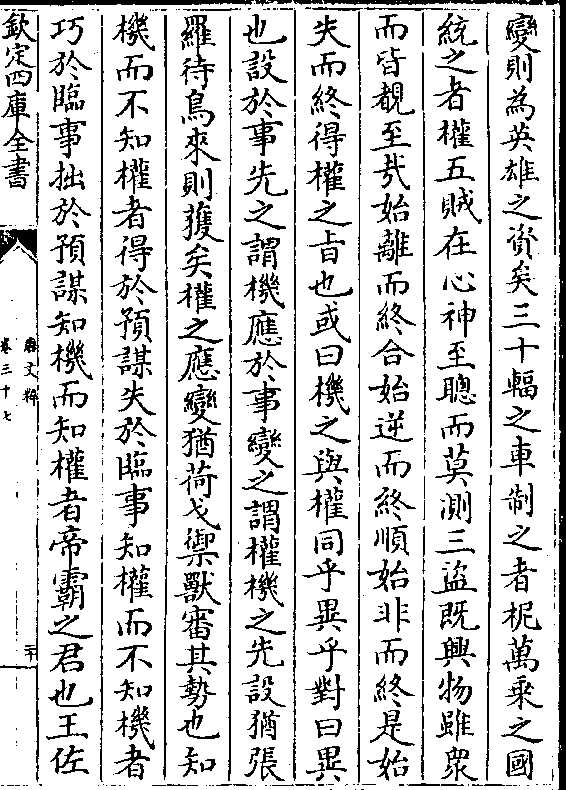 變則為英雄之資矣三十輻之車制之者柅萬乗之國
統之者權五賊在心神至聰而莫測三盜既興物雖衆
而皆覩至㢤始離而終合始逆而終順始非而終是始
失而終得權之㫖也或曰機之與權同乎異乎對曰異
也設於事先之謂機應於事變之謂權機之先設猶張
羅待鳥來則獲矣權之應變猶荷戈禦獸審其勢也知
機而不知權者得於預謀失於臨事知權而不知機者
巧於臨事拙於預謀知機而知權者帝霸之君也王佐
欽定四庫全書
唐文粹
卷三十七
二十